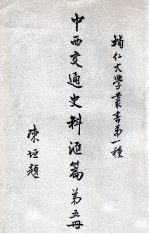 輔仁大學叢書第一種
中西交通史料匯篇第五冊
陳垣題